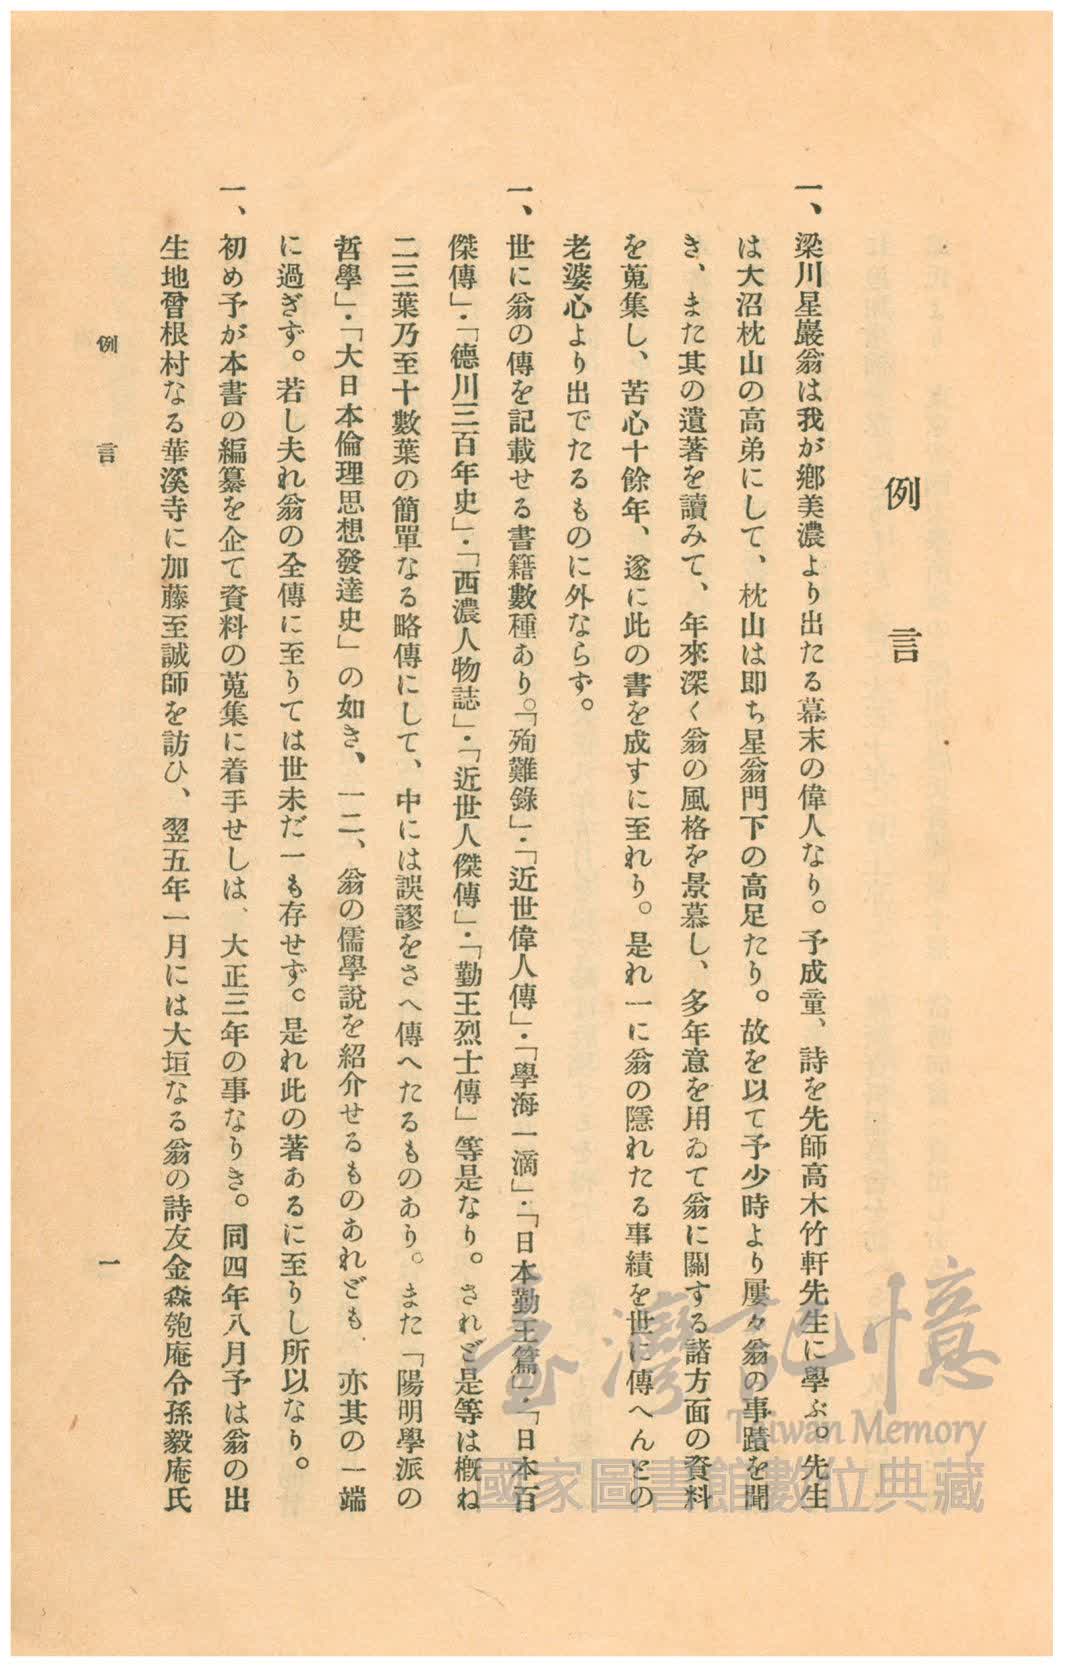 例言
一、梁川星巖翁は我が鄕美濃より出たる幕末の偉人なり。予成童、詩を先師高木竹軒先生に學ぶ。先生
は大沼枕山の高弟にして、枕山は卽ち星翁門下の高足たり。故を以て予少時より屢々翁の事蹟を聞
き、また其の遺著を讀みて、年來深く翁の風格を景慕し、多年意を用ゐて翁に關する諸方面の資料
を蒐集し、苦心十餘年、遂に此の書を成すに至れり。是れ一に翁の隱れたる事績を世に傳へんとの
老婆心より出でたるものに外ならず。
一、世に翁の傳を記載せる書籍數種あり。「殉難錄」・「近世偉人傳」・「學海一滴」・「日本勤王篇」・「日本百
傑傳」・「德川三百年史」・「西濃人物誌」・「近世人傑傳」・「勤王烈士傳」等是なり。されど是等は槪ね
二三葉乃至十數葉の簡單なる略傳にして、中には誤謬をさへ傳へたるものあり。また「陽明學派の
哲學」・「大日本倫理思想發達史」の如き、一二、翁の儒學說を紹介せるものあれども、亦其の一端
に過ぎず。若し夫れ翁の全傳に至りては世未だ一も存せず。是れ此の著あるに至りし所以なり。
一、初め予が本書の編纂を企て資料の蒐集に着手せしは、大正三年の事なりき。同四年八月予は翁の出
生地曾根村なる華溪寺に加藤至誠師を訪ひ、翌五年一月には大垣なる翁の詩友金森匏庵令孫毅庵氏
例言 一
臺灣記憶
Taiwan Memory
國家圖書館數位典藏